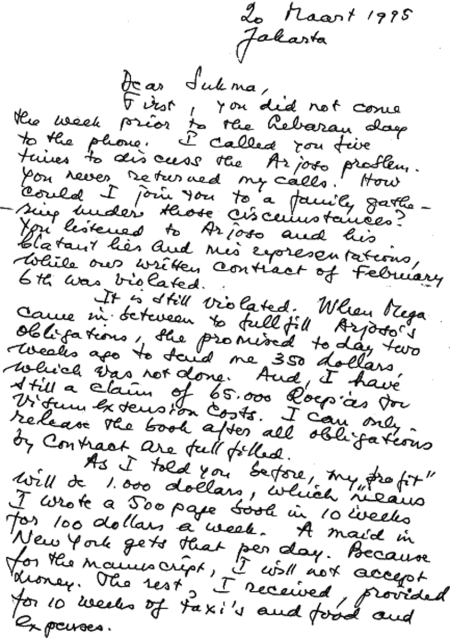 20 Maart 1995
Jakarta
Dear Sukma,
First, you did not come
the week prior to the Lebaran day
to the phone. I called you five
times to discuss the Arjoso problem.
You never returned my calls. How
could I join you to a family gathe-
ring under those circumstances?
You listened to Arjoso and his
blatant lies and mis representations,
while our written contract of February
6th was violated.
It is still violated. When Mega
came in between to full fill Arjoso's
obligations, she promised to day two
weeks ago to send me 350 dollars,
which was not done. And, I have
still a claim of 65.000 Roepias for
Visum extension costs. I can only
release the book after all obligations
by Contract are full filled.
As I told you before, my "profit"
will be 1.000 dollars, which means
I wrote a 500 page book in 10 weeks
for 100 dollars a week. A maid in
New York gets that per day. Because
for the manuscript, I will not accept
money. The rest, I received, provided
for 10 weeks of taxi's and food and
expenses.